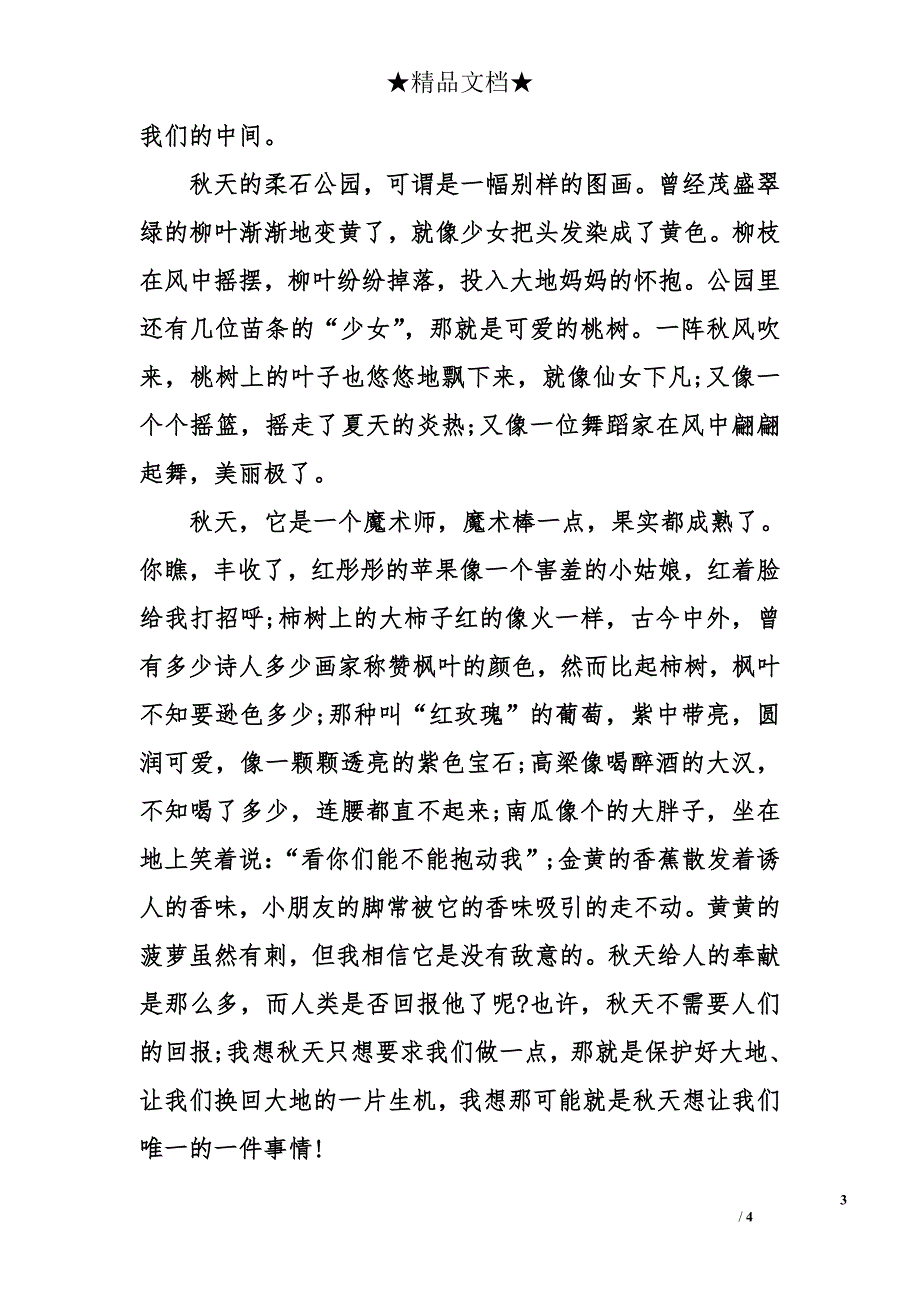 ★精品文档★
我们的中间。
秋天的柔石公园，可谓是一幅别样的图画。曾经茂盛翠
绿的柳叶渐渐地变黄了，就像少女把头发染成了黄色。柳枝
在风中摇摆，柳叶纷纷掉落，投入大地妈妈的怀抱。公园里
还有几位苗条的“少女”，那就是可爱的桃树。一阵秋风吹
来，桃树上的叶子也悠悠地飘下来，就像仙女下凡;又像一
个个摇篮，摇走了夏天的炎热;又像一位舞蹈家在风中翩翩
起舞，美丽极了。
秋天，它是一个魔术师，魔术棒一点，果实都成熟了。
你瞧，丰收了，红彤彤的苹果像一个害羞的小姑娘，红着脸
给我打招呼;柿树上的大柿子红的像火一样，古今中外，曾
有多少诗人多少画家称赞枫叶的颜色，然而比起柿树，枫叶
不知要逊色多少;那种叫“红玫瑰”的葡萄，紫中带亮，圆
润可爱，像一颗颗透亮的紫色宝石;高梁像喝醉酒的大汉，
不知喝了多少，连腰都直不起来;南瓜像个的大胖子，坐在
地上笑着说：“看你们能不能抱动我”;金黄的香蕉散发着诱
人的香味，小朋友的脚常被它的香味吸引的走不动。黄黄的
菠萝虽然有刺，但我相信它是没有敌意的。秋天给人的奉献
是那么多，而人类是否回报他了呢?也许，秋天不需要人们
的回报;我想秋天只想要求我们做一点，那就是保护好大地、
让我们换回大地的一片生机，我想那可能就是秋天想让我们
唯一的一件事情!
3
/ 4